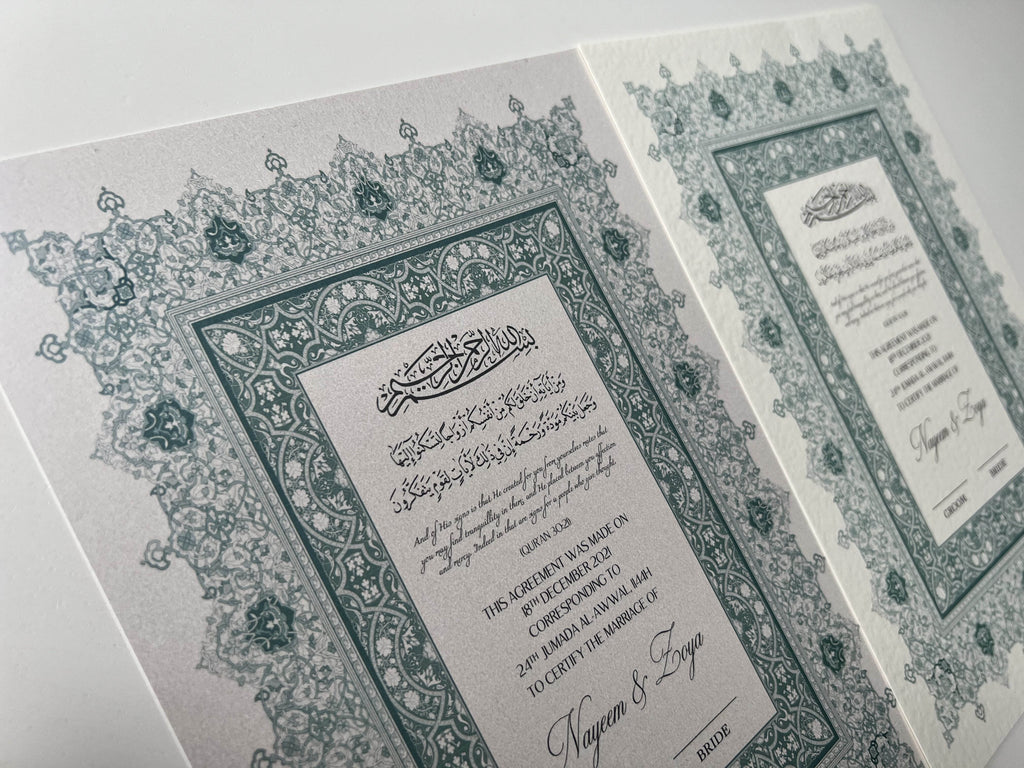 بسم الله الرحمن الرحيم
وَمِنْ آيَاتِهِ أَنْ خَلَقَ لَكُم مِّنْ أَنفُسِكُمْ أَزْوَاجًا لِّتَسْكُنُوا إِلَيْهَا
وَجَعَلَ بَيْنَكُم مَّوَدَّةً وَرَحْمَةً إِنَّ فِي ذَٰلِكَ لَآيَاتٍ لِّقَوْمٍ يَتَفَكَّرُونَ
And of His signs is that He created for you from yourselves mates that
you may find tranquillity in them, and He placed between you affection
and mercy. Indeed in that are signs for a people who give thought.
(QURAN 30:21)
THIS AGREEMENT WAS MADE ON
18TH DECEMBER 2021
CORRESPONDING TO
24TH JUMADA AL-AWWAL 1444H
TO CERTIFY THE MARRIAGE OF
Nayeem & Zoya
BRIDE
بسم الله الرحمن الرحيم
THIS AGREEMENT WAS MADE ON
18TH DECEMBER 2021
CORRESPONDING TO
24TH JUMADA AL-AWWAL 1444H
TO CERTIFY THE MARRIAGE OF
Nayeem & Zoya
GROOM BRIDE